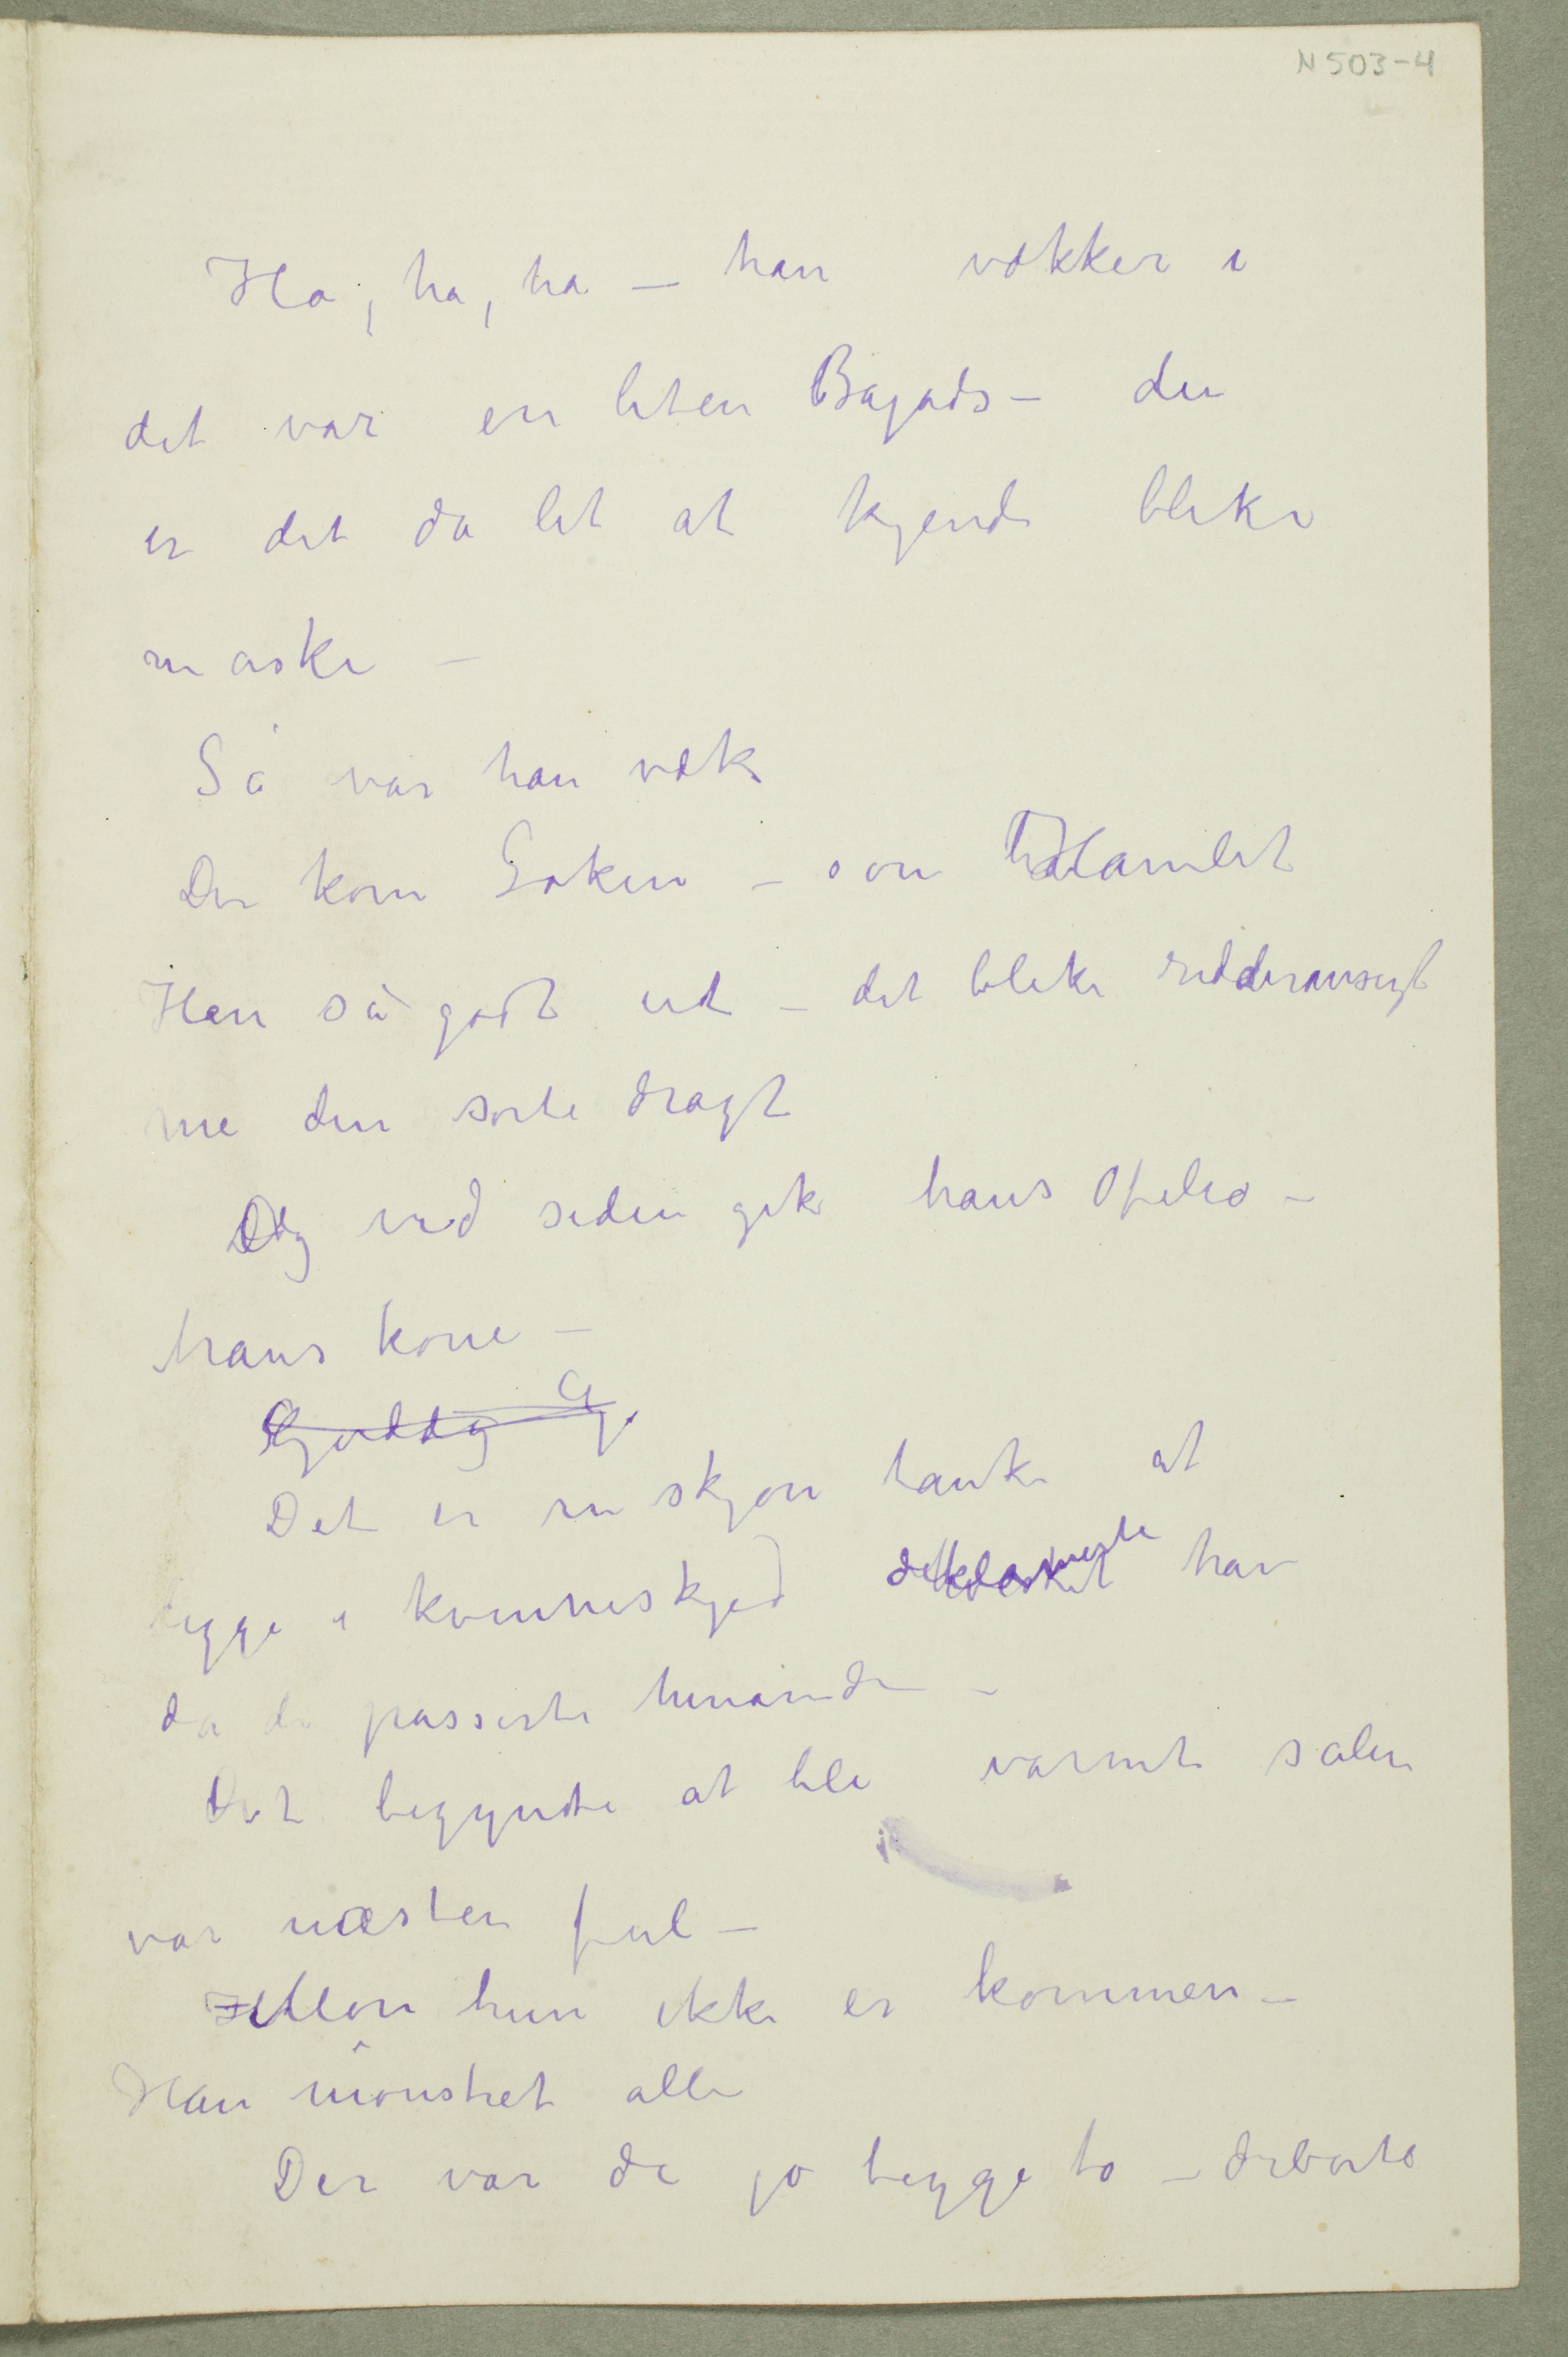 N 503-4
Ha, ha, ha – han vækker i
det var en liten Bagads – den
er det da let at kjende bleke
maske –
Så var han væk
Der kom Gøken – som Hamlet
Han så godt ud – det bleke ridderansigt
me den sorte dragt
Og ved siden gik hans Ofelia –
hans kone –
Det er en skjøn tanke at
ligge i kvinneskjød han
da de passerte hinanden –
Det begyndte at bli varmt salen
var næsten ful –
Mon hun ikke er kommen –
Han mønstret alle
Der var de jo begge to – derborte